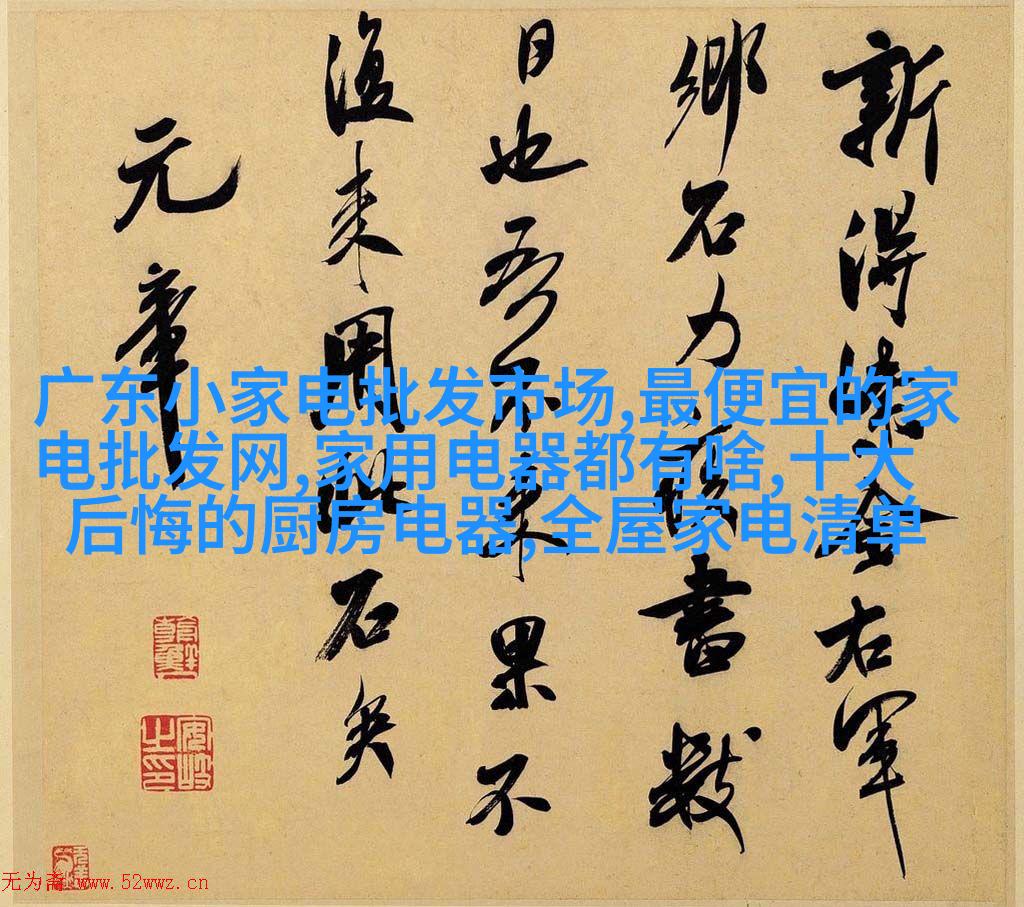 新得紫金右軍
鄉石力疾書數
日也吾不來果不
復來用此石矣
元章
广东小家电批发市场,最便宜的家
电批发网,家用电器都有啥,十大
后悔的厨房电器,全屋家电清单
无为斋 www.52wwz.cn